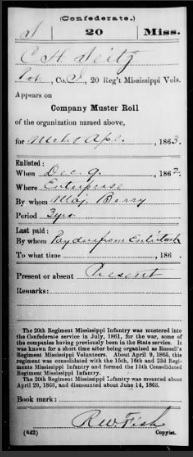 (Confederate.)
S 20 Miss.
C. H. Seitz
Co. 20 Reg't Mississippi Vols.
Appears on
Company Muster Roll
of the organization named above,
for Mch & Apl., 1863.
Enlisted:
When Dec. 9, 186
Where Enterprise
By whom Maj. Berry
Period 3 yrs
Last paid:
By whom
To what time , 186 .
Present or absent Present
Remarks:
The 20th Regiment Mississippi Infantry was mustered into
the Confederate service in July, 1861, for the war, some of
the companies having previously been in the State service. It
was known for a short time after being organized as Russell's
Regiment Mississippi Volunteers. About April 9, 1865, this
regiment was consolidated with the 15th, 16th and 23d Regi-
ments Mississippi Infantry and formed the 15th Consolidated
Regiment Mississippi Infantry.
The 20th Regiment Mississippi Infantry was mounted about
April 29, 1863, and dismounted about June 14, 1863.
Book mark:
R W Fish
(642) Copyist.